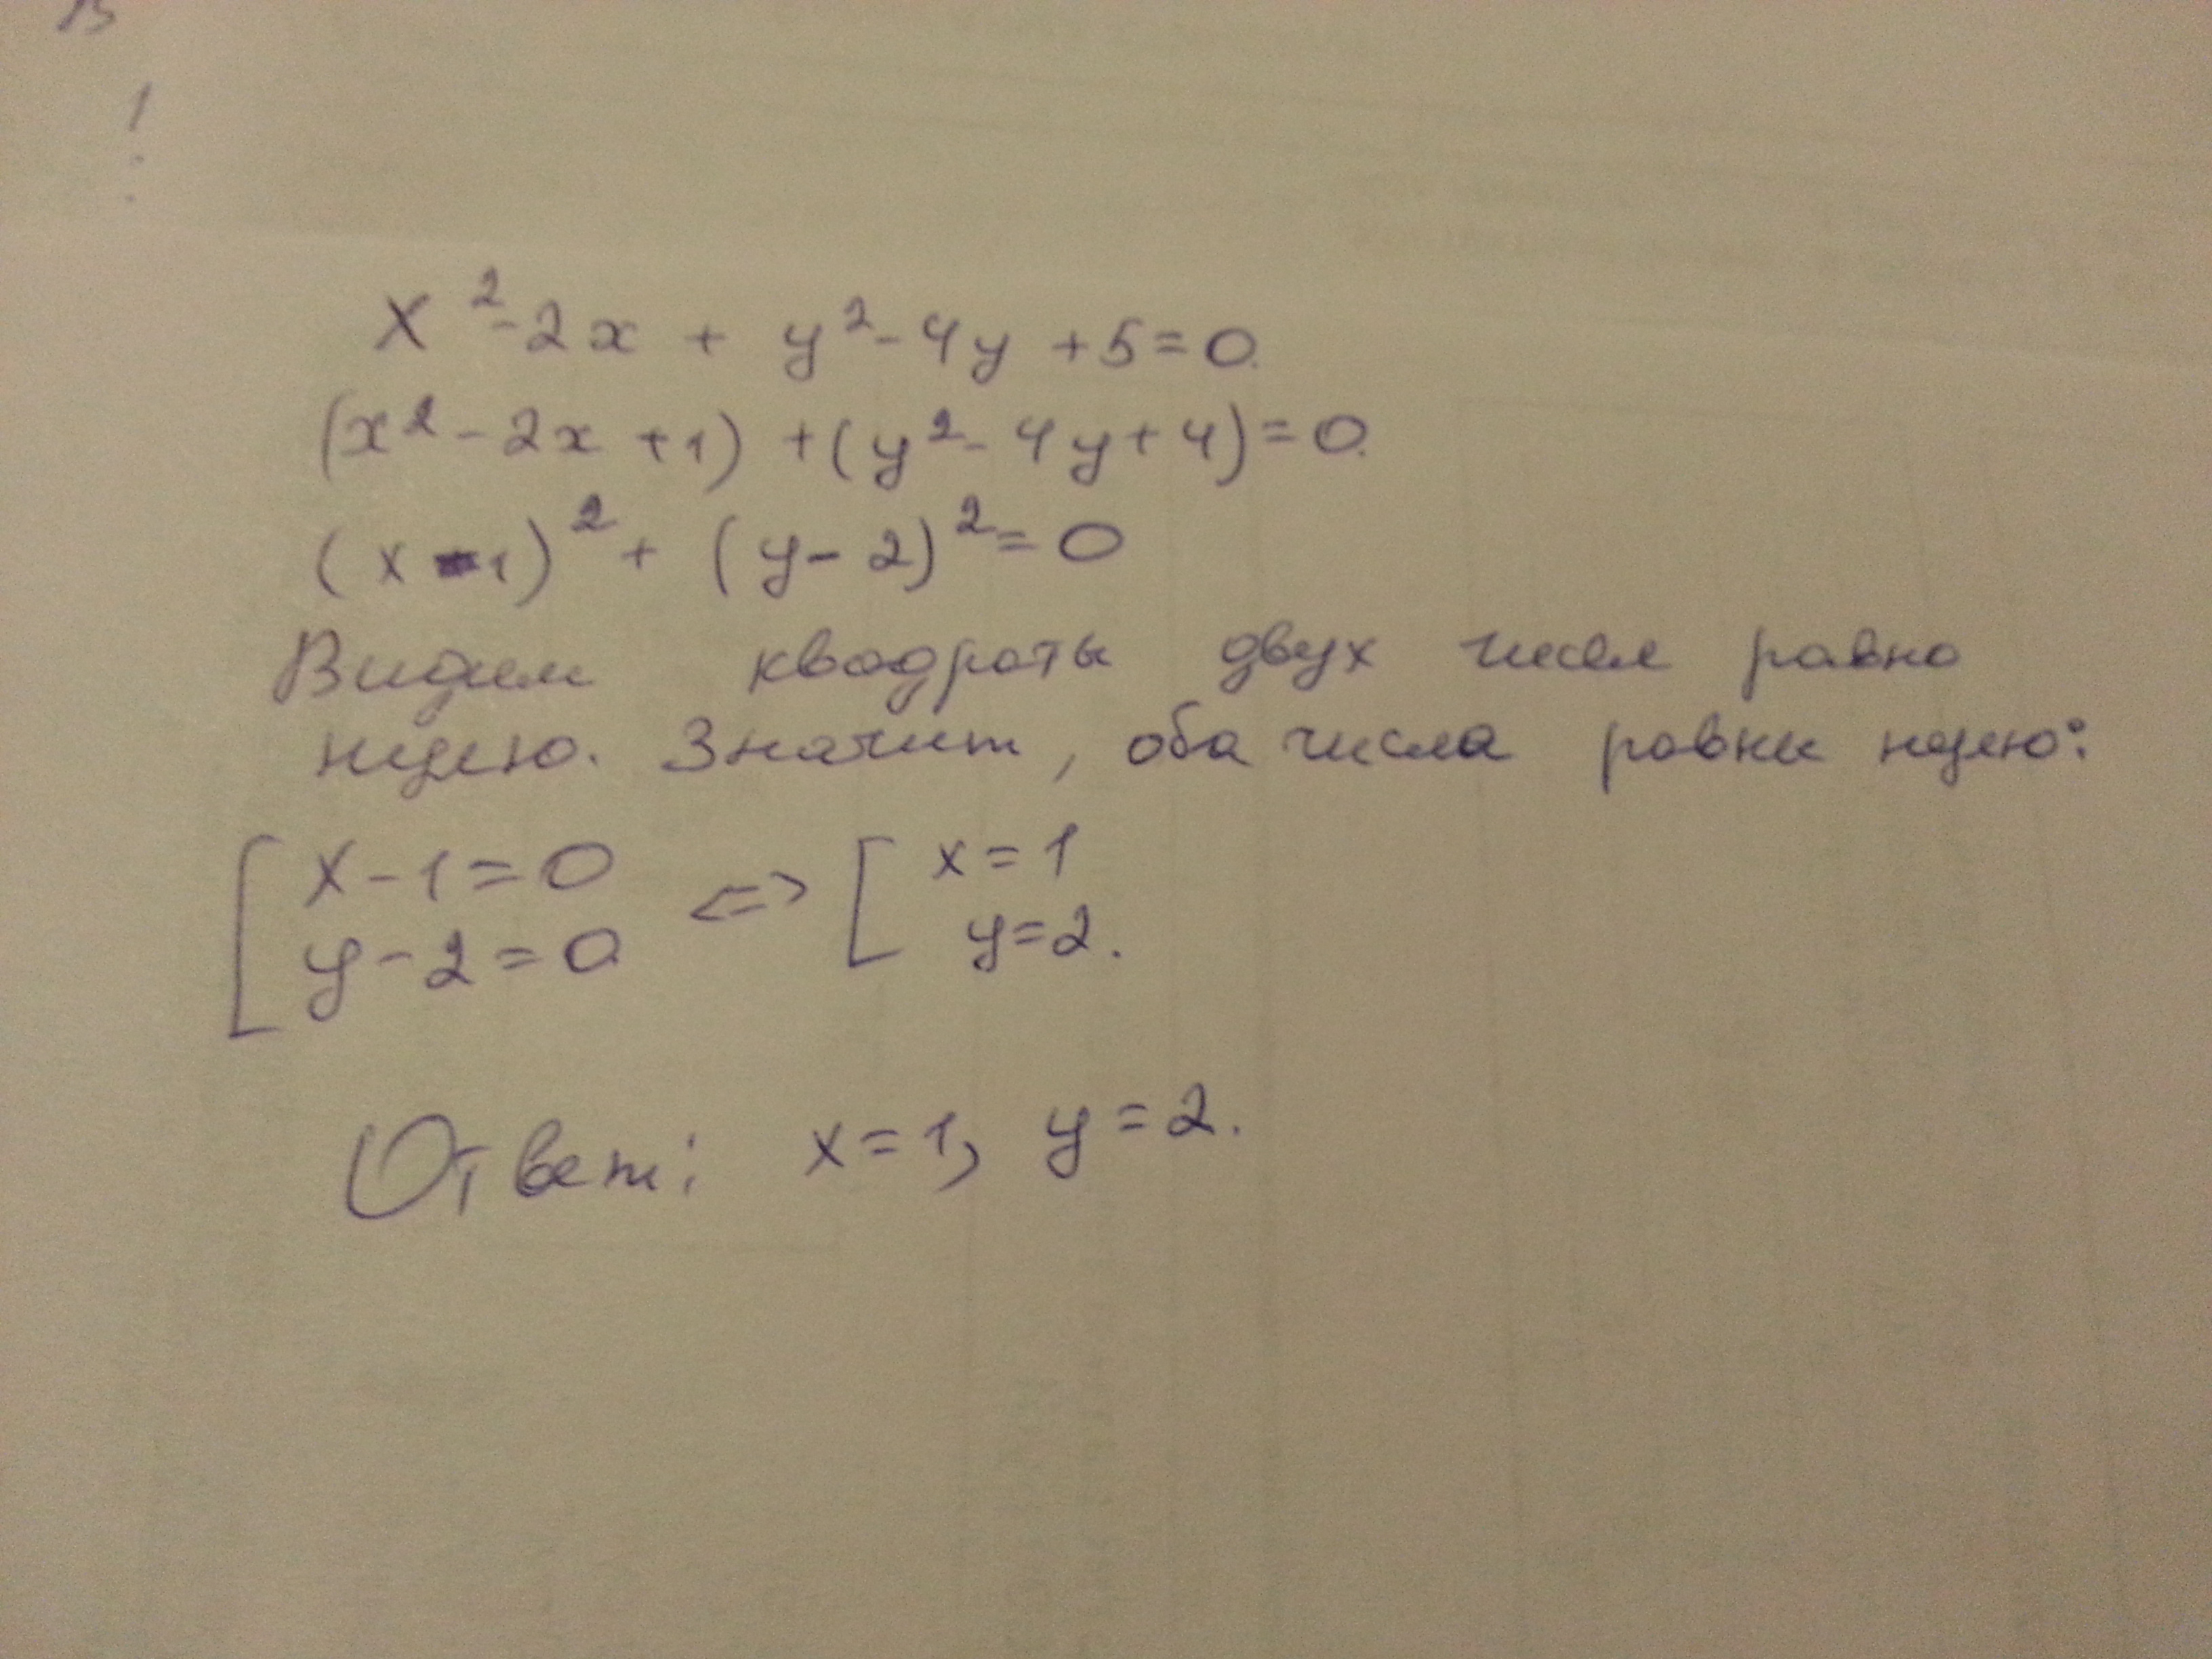 x² - 2x + y² - 4y + 5 = 0.
(x² - 2x + 1) + (y² - 4y + 4) = 0.
(x - 1)² + (y - 2)² = 0
Видим квадраты двух чисел равно
нулю. Значит, оба числа равны нулю:
[ x - 1 = 0 <=> [ x = 1
y - 2 = 0 y = 2.
Ответ: x = 1, y = 2.